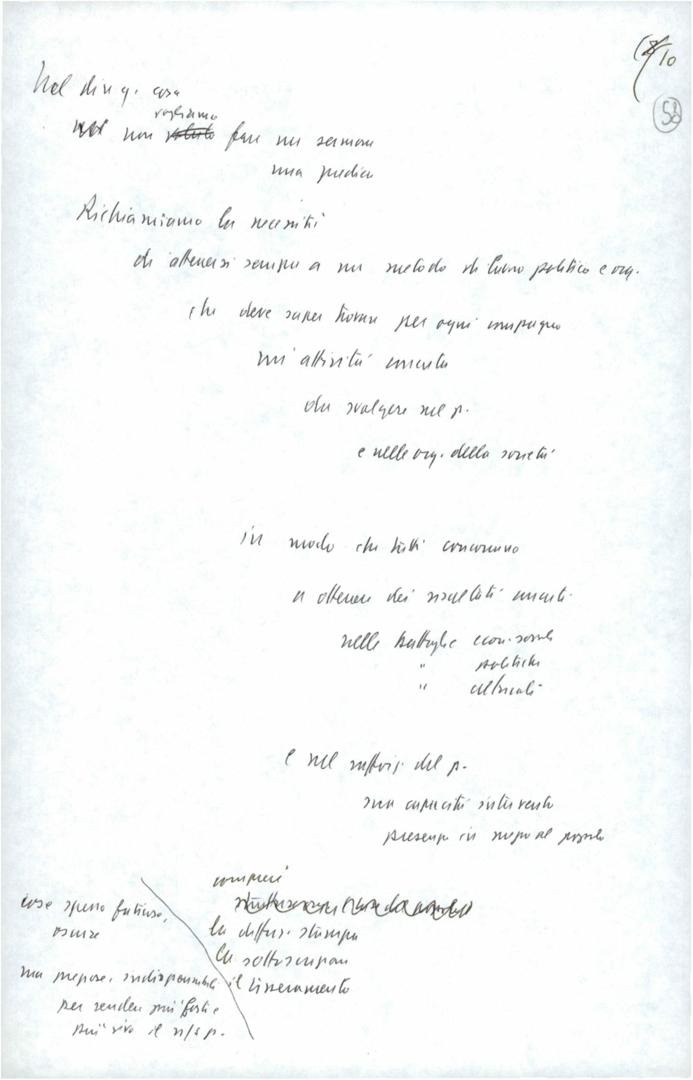 10
58
Nel dire q. cosa
vogliamo
noi non voluto fare un sermone
una predica
Richiamiamo la necessità
di attenersi sempre a un metodo di lavoro politico e org.
che deve saper trovare per ogni compagno
un'attività concreta
da svolgere nel p.
e nelle org. della società
in modo che tutti concorrano
a ottenere dei risultati concreti
nelle battaglie econ. sociali
" politiche
" culturali
e nel rafforz. del p.
sua capacità intervento
presenza in mezzo al popolo
compresi
la diffus. stampa
la sottoscrizione
il tesseramento
cose spesso faticose,
oscure
ma preziose, indispensabili
per rendere più forte e
più vivo il n/s p.